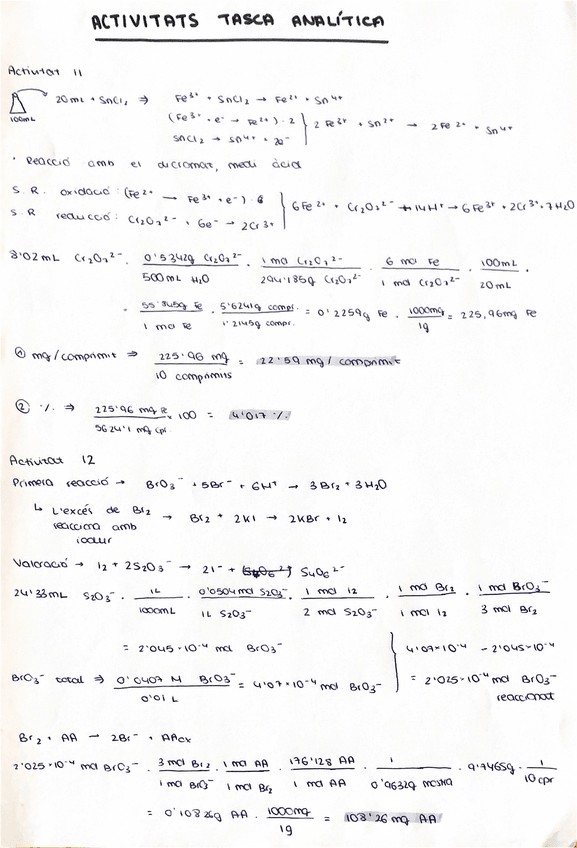 ACTIVITATS TASCA ANALÍTICA
Activitat 11
20 mL + SnCl₂ ⇒ Fe³⁺ + SnCl₂ → Fe²⁺ + Sn⁴⁺
100mL
(Fe³⁺ + e⁻ → Fe²⁺) · 2
SnCl₂ → Sn⁴⁺ + 2e⁻
2 Fe³⁺ + Sn²⁺ → 2 Fe²⁺ + Sn⁴⁺
· Reacció amb el dicromat, medi àcid
S.R. oxidació: (Fe²⁺ → Fe³⁺ + e⁻) · 6
S.R reducció: Cr₂O₇²⁻ + 6e⁻ → 2Cr³⁺
6Fe²⁺ + Cr₂O₇²⁻ + 14H⁺ → 6Fe³⁺ + 2Cr³⁺ + 7H₂O
8'02 mL Cr₂O₇²⁻ · 0'5342g Cr₂O₇²⁻ / 500mL H₂O · 1 mol Cr₂O₇²⁻ / 294'185g Cr₂O₇²⁻ · 6 mol Fe / 1 mol Cr₂O₇²⁻ · 100mL / 20mL ·
· 55'845g Fe / 1 mol Fe · 5'6241g compr. / 1'2145g compr. = 0'2259g Fe · 1000mg / 1g = 225,96mg Fe
① mg/comprimit ⇒ 225'96 mg / 10 comprimits = 22'59 mg/comprimit
② % ⇒ 225'96 mg Fe / 5624'1 mg cpr. × 100 = 4'017 %
Activitat 12
Primera reacció → BrO₃⁻ + 5Br⁻ + 6H⁺ → 3Br₂ + 3H₂O
↳ L'excés de Br₂ reacciona amb iodur → Br₂ + 2KI → 2KBr + I₂
Valoració → I₂ + 2S₂O₃⁻ → 2I⁻ + S₄O₆²⁻
24'33mL S₂O₃⁻ · 1L / 1000mL · 0'0504 mol S₂O₃⁻ / 1L S₂O₃⁻ · 1 mol I₂ / 2 mol S₂O₃⁻ · 1 mol Br₂ / 1 mol I₂ · 1 mol BrO₃⁻ / 3 mol Br₂
= 2'045·10⁻⁴ mol BrO₃⁻
BrO₃⁻ total ⇒ 0'0407 M BrO₃⁻ / 0'01 L = 4'07×10⁻⁴ mol BrO₃⁻
4'07×10⁻⁴ - 2'045×10⁻⁴
= 2'025×10⁻⁴ mol BrO₃⁻
reaccionat
Br₂ + AA → 2Br⁻ + AAox
2'025×10⁻⁴ mol BrO₃⁻ · 3 mol Br₂ / 1 mol BrO₃⁻ · 1 mol AA / 1 mol Br₂ · 176'128 AA / 1 mol AA · 1 / 0'9632g mostra · 9'7465g · 1 / 10 cpr
= 0'10826g AA · 1000mg / 1g = 108'26 mg AA